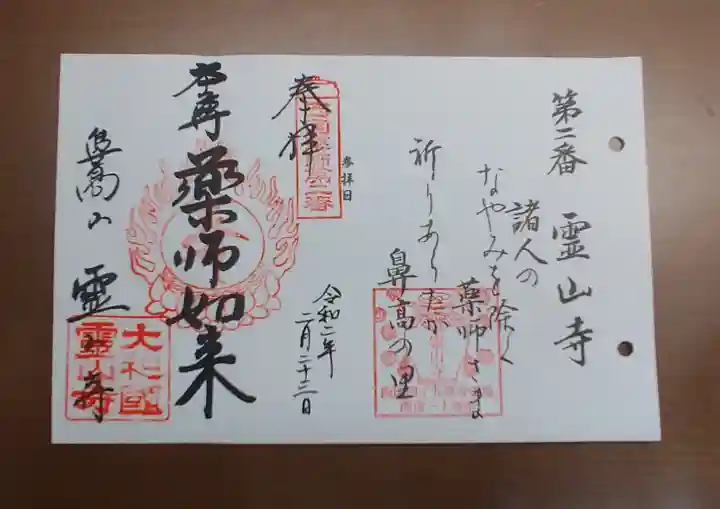 第二番 霊山寺
諸人の
なやみを除く
薬師さま
祈りあらたか
鼻高の里
奉拝
参拝日
令和二年
二月二十三日
本尊 薬師如来
鼻高山 霊山寺
大和國
霊山寺